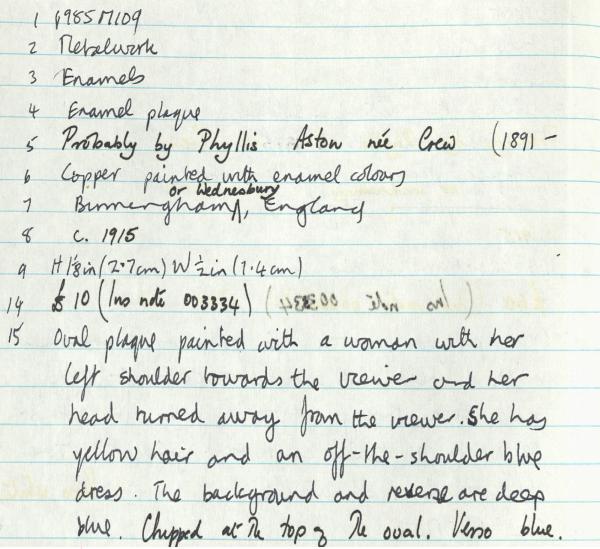 1 1985M109
2 Metalwork
3 Enamels
4 Enamel plaque
5 Probably by Phyllis Aston née Crew (1891 -
6 Copper painted with enamel colours
or Wednesbury
7 Birmingham, England
8 c. 1915
9 H 1⅛in (2.7cm) W ½in (1.4cm)
14 £10 (Ins note 003334) (Ins note 003334)
15 Oval plaque painted with a woman with her
left shoulder towards the viewer and her
head turned away from the viewer. She has
yellow hair and an off-the-shoulder blue
dress. The background and reverse are deep
blue. Chipped at the top of the oval. Verso blue.